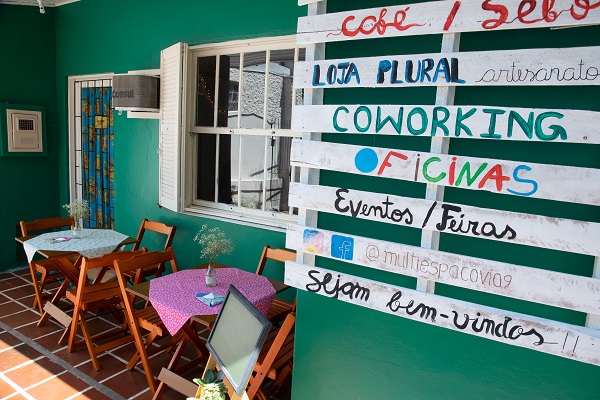 Café / Sebo
LOJA PLURAL artesanato
COWORKING
OFICINAS
Eventos / Feiras
@multiespacovia9
Sejam bem-vindos !!
CONSUL